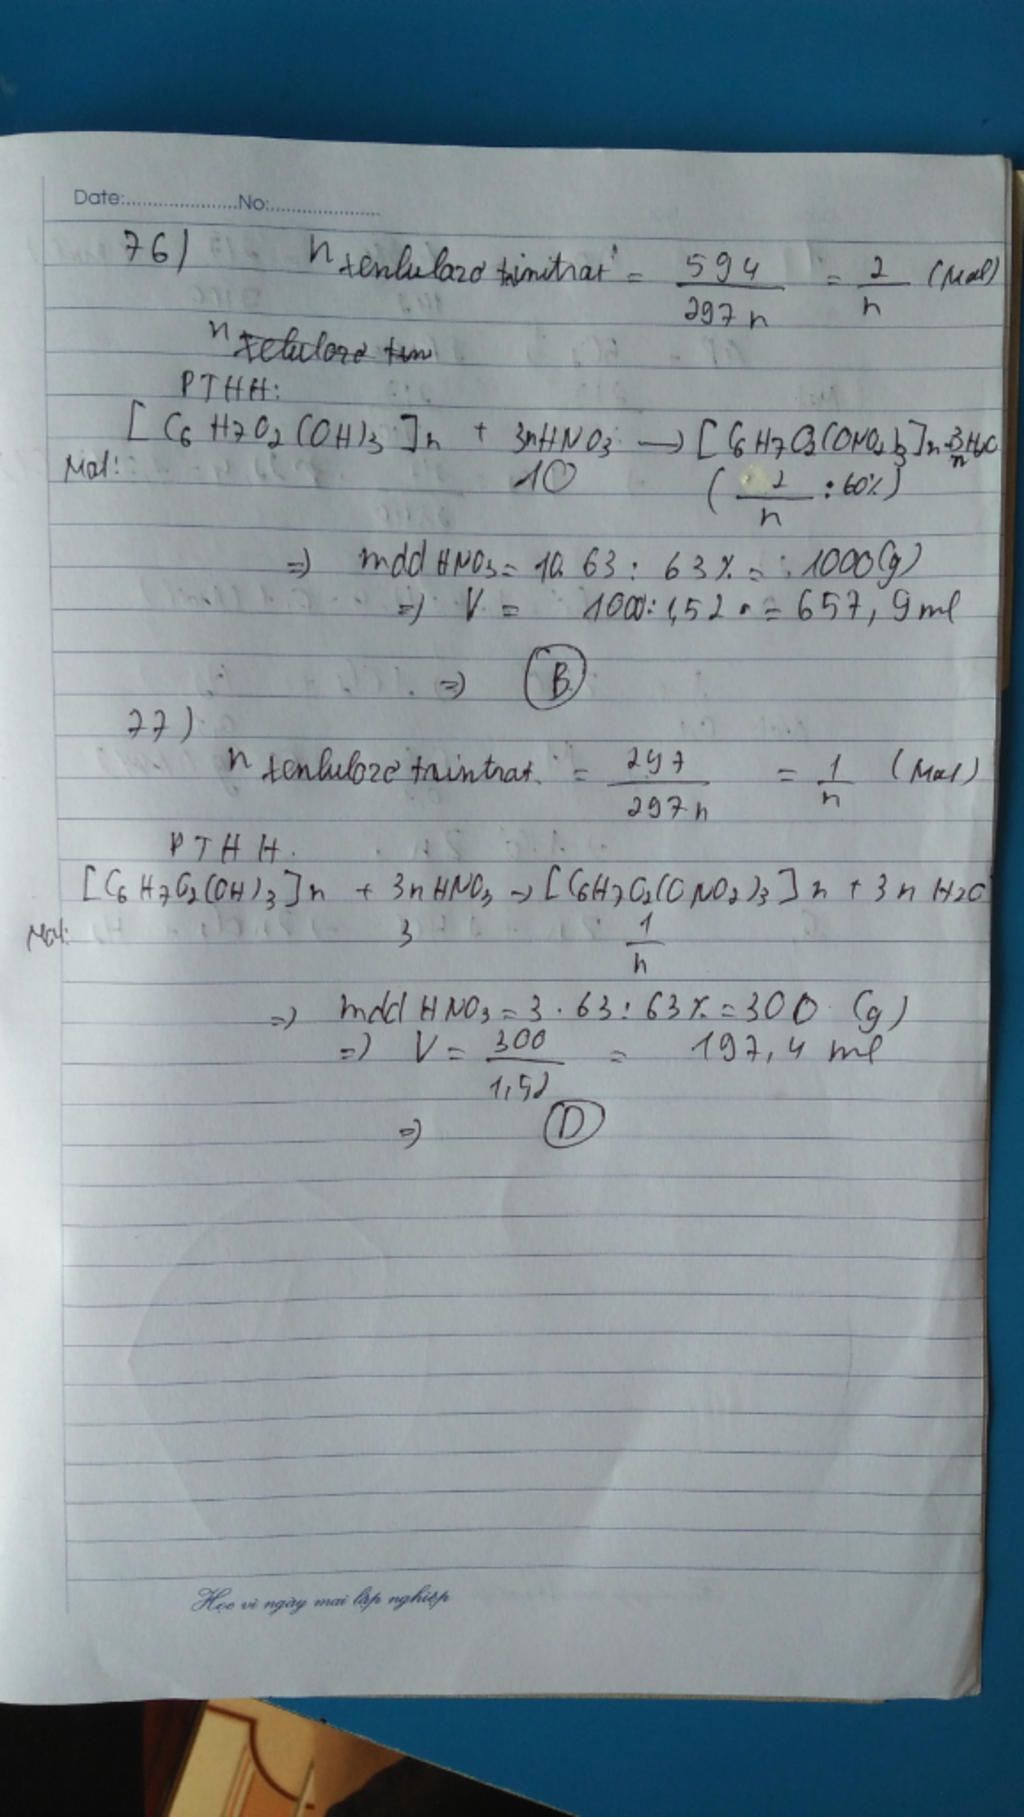 Date:.....................No:....................
76) n xenlulozo trinitrat = 594/297n = 2/n (Mol)
n xelulozo trin
PTHH:
[C6H7O2(OH)3]n + 3nHNO3 → [C6H7O2(ONO2)3]n
Mol: 10 (2/n : 60%)
=) mdd HNO3 = 10.63 : 63% = 1000(g)
=) V = 1000:1,52 = 657,9ml
=) B
77)
n xenlulozo trintrat = 297/297n = 1/n (Mol)
PTHH.
[C6H7O2(OH)3]n + 3nHNO3 → [C6H7O2(ONO2)3]n + 3nH2O
Mol: 3 1/n
=) mdd HNO3 = 3.63:63% = 300 (g)
=) V = 300/1,52 = 197,4 ml
=) D
Học vì ngày mai lập nghiệp